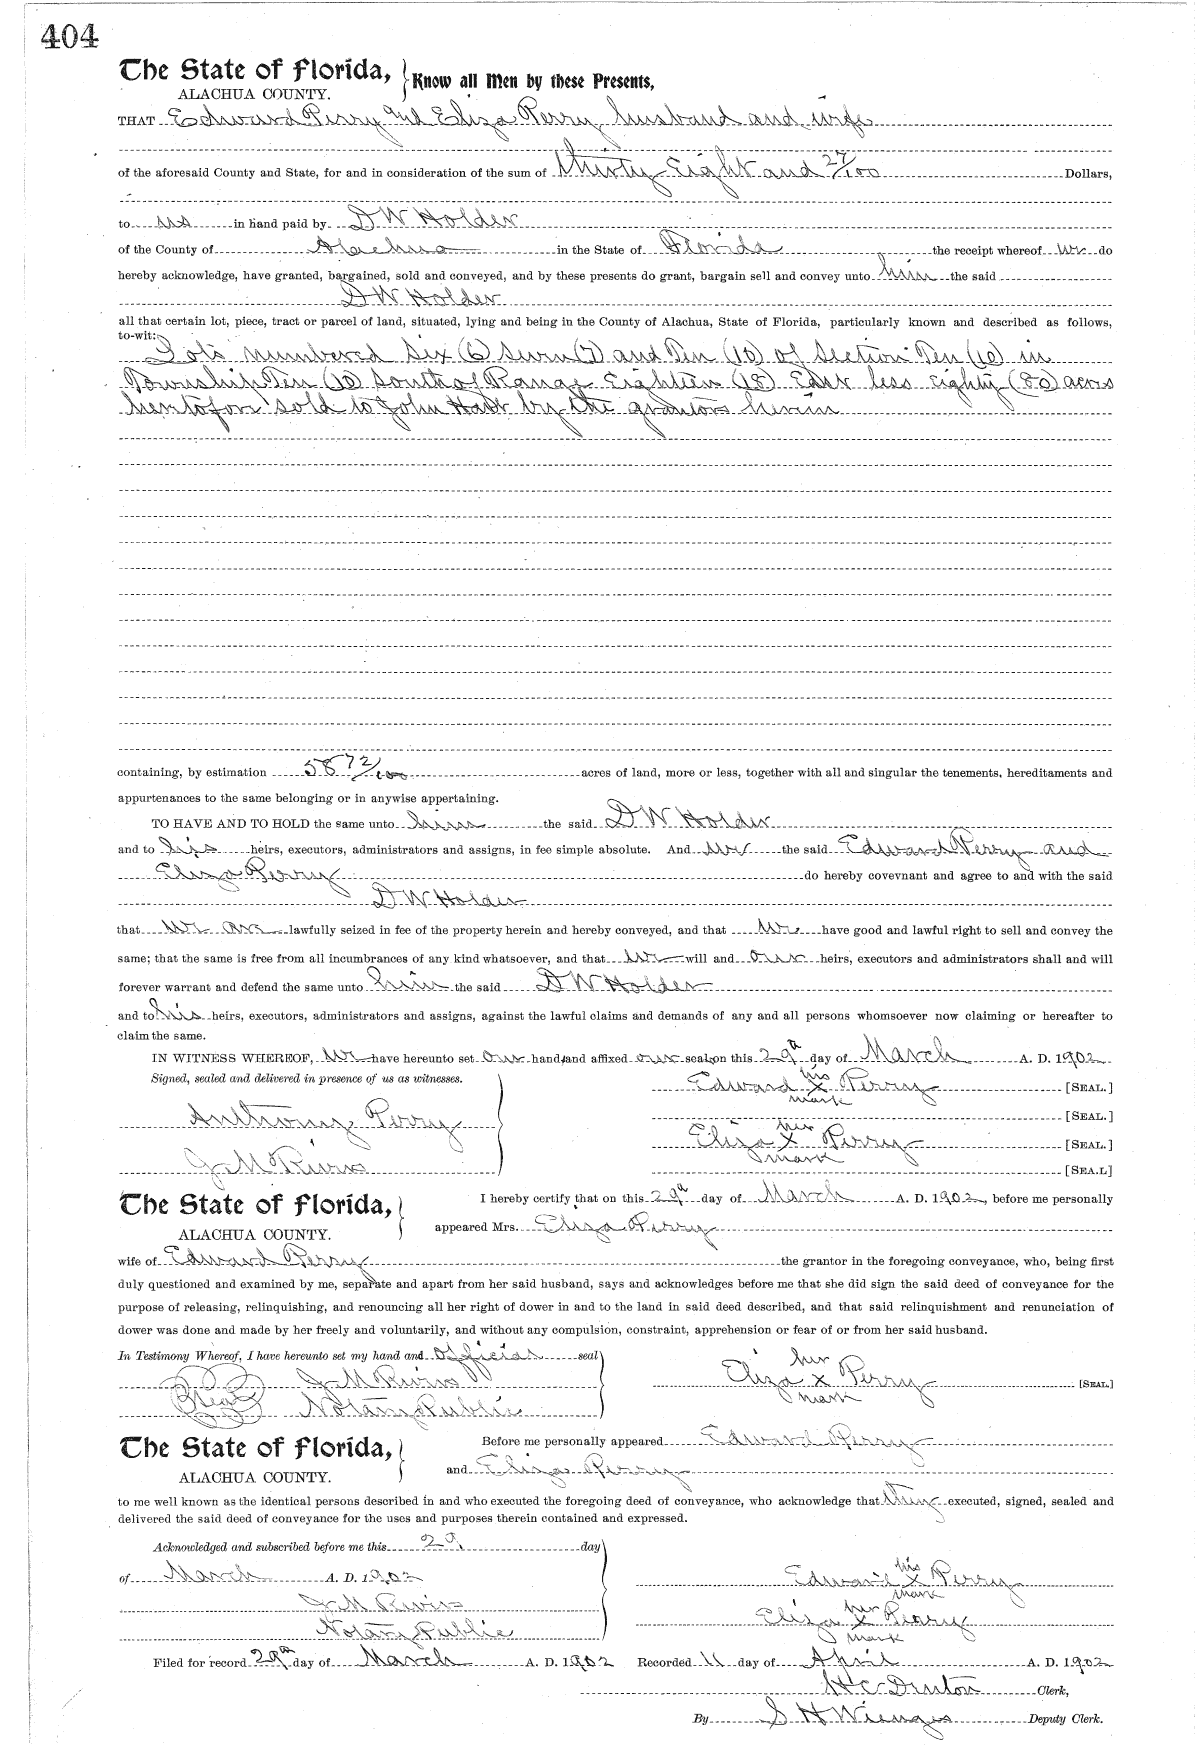 404
The State of Florida, Know all Men by these Presents,
ALACHUA COUNTY.
THAT Edward Perry and Eliza Perry husband and wife
of the aforesaid County and State, for and in consideration of the sum of thirty Eight and 27/100 Dollars,
to us in hand paid by D W Holder
of the County of Alachua in the State of Florida the receipt whereof we do
hereby acknowledge, have granted, bargained, sold and conveyed, and by these presents do grant, bargain sell and convey unto him the said
D W Holder
all that certain lot, piece, tract or parcel of land, situated, lying and being in the County of Alachua, State of Florida, particularly known and described as follows,
to-wit:
Lots numbered Six (6) Seven (7) and Ten (10) of Section Ten (10) in
Township Ten (10) South of Range Eighteen (18) East less Eighty (80) acres
heretofore sold to John Hatt by the grantors herein
containing, by estimation 58 72/100 acres of land, more or less, together with all and singular the tenements, hereditaments and
appurtenances to the same belonging or in anywise appertaining.
TO HAVE AND TO HOLD the same unto him the said D W Holder
and to his heirs, executors, administrators and assigns, in fee simple absolute. And we the said Edward Perry and
Eliza Perry do hereby covevnant and agree to and with the said
D W Holder
that we are lawfully seized in fee of the property herein and hereby conveyed, and that we have good and lawful right to sell and convey the
same; that the same is free from all incumbrances of any kind whatsoever, and that we will and our heirs, executors and administrators shall and will
forever warrant and defend the same unto him the said D W Holder
and to his heirs, executors, administrators and assigns, against the lawful claims and demands of any and all persons whomsoever now claiming or hereafter to
claim the same.
IN WITNESS WHEREOF, We have hereunto set our hand and affixed our seal on this 29th day of March A. D. 1902
Signed, sealed and delivered in presence of us as witnesses.
Edward his X mark Perry [SEAL.]
[SEAL.]
Anthony Perry
Eliza her X mark Perry [SEAL.]
J M Rivers [SEA.L]
The State of Florida, I hereby certify that on this 29th day of March A. D. 1902, before me personally
ALACHUA COUNTY. appeared Mrs. Eliza Perry
wife of Edward Perry the grantor in the foregoing conveyance, who, being first
duly questioned and examined by me, separate and apart from her said husband, says and acknowledges before me that she did sign the said deed of conveyance for the
purpose of releasing, relinquishing, and renouncing all her right of dower in and to the land in said deed described, and that said relinquishment and renunciation of
dower was done and made by her freely and voluntarily, and without any compulsion, constraint, apprehension or fear of or from her said husband.
In Testimony Whereof, I have hereunto set my hand and official seal
J M Rivers Eliza her X mark Perry [SEAL]
Seal Notary Public
The State of Florida, Before me personally appeared Edward Perry
ALACHUA COUNTY. and Eliza Perry
to me well known as the identical persons described in and who executed the foregoing deed of conveyance, who acknowledge that they executed, signed, sealed and
delivered the said deed of conveyance for the uses and purposes therein contained and expressed.
Acknowledged and subscribed before me this 29 day
of March A. D. 1902 Edward his X mark Perry
J M Rivers
Eliza her X mark Perry
Notary Public
Filed for record 29th day of March A. D. 1902 Recorded 11 day of April A. D. 1902
H C Denton Clerk,
By S H Wienges Deputy Clerk.